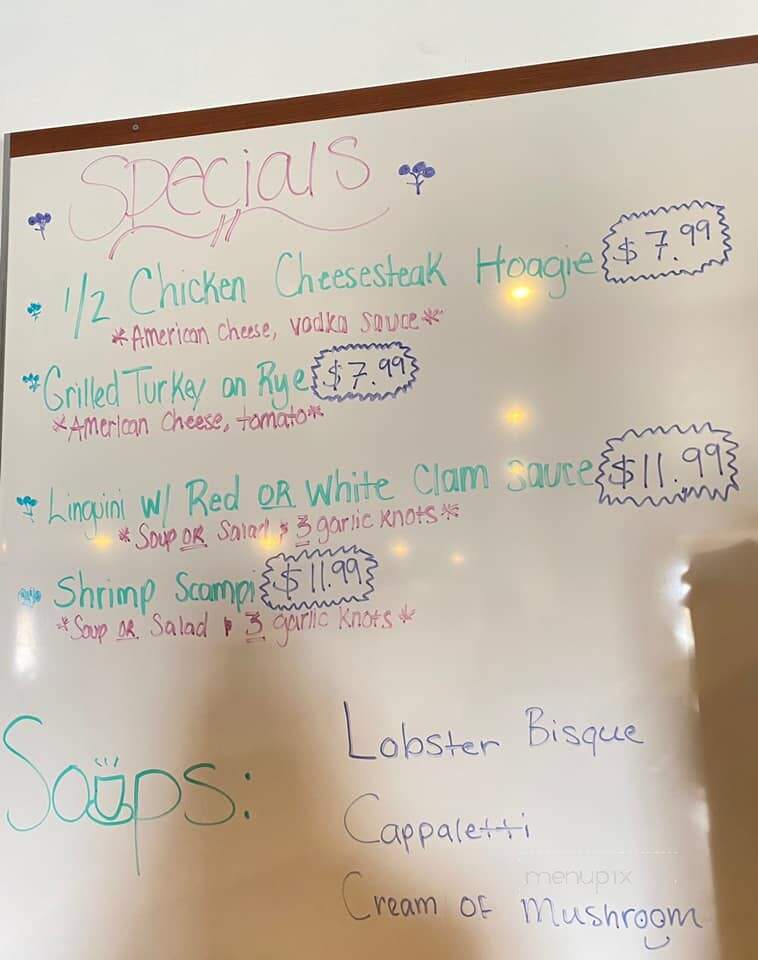 Specials
1/2 Chicken Cheesesteak Hoagie $7.99
*American Cheese, vodka sauce*
Grilled Turkey on Rye $7.99
*American Cheese, tomato*
Linguini w/ Red OR White Clam sauce $11.99
*Soup OR Salad & 3 garlic knots*
Shrimp Scampi $11.99
*Soup OR Salad & 3 garlic knots*
Soups:
Lobster Bisque
Cappaletti
menupix
Cream OF Mushroom